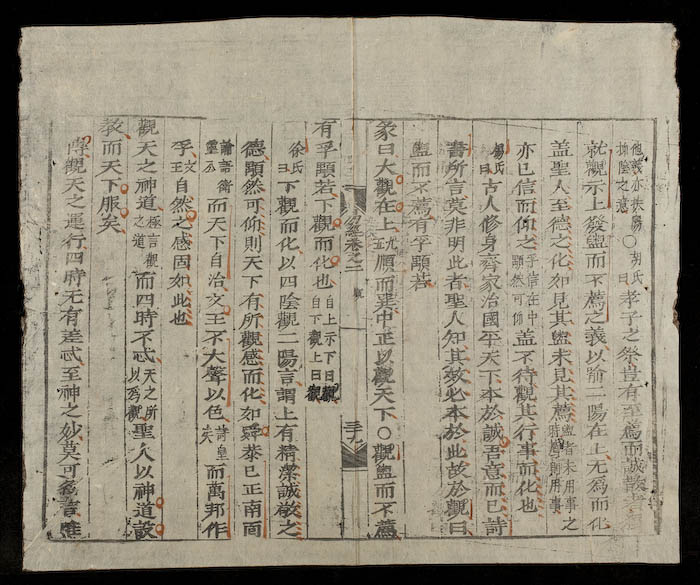 他義亦扶陽抑陰之意○胡氏曰孝子之祭豈有至薦而誠散者
就觀示上發盥而不薦之義以喻二陽在上无為而化
蓋聖人至德之化如見其盥未見其薦盥者未用事之時薦則用事
亦已信而仰之孚信在中顒然可仰蓋不待觀其行事而化也
楊氏曰古人修身齊家治國平天下本於誠吾意而已詩
書所言莫非明此者聖人知其效必本於此故於觀曰
盥而不薦有孚顒若
彖曰大觀在上九五順而巽中正以觀天下○觀盥而不薦
有孚顒若下觀而化也自上示下曰觀自下觀上曰觀
易經卷之二 觀 三十九
徐氏曰下觀而化以四陰觀二陽言謂上有精潔誠敬之
德顒然可仰則天下有所觀感而化如舜恭已正南面
論語衛靈公而天下自治文王不大聲以色詩皇矣而萬邦作
孚文王自然之感固如此也
觀天之神道極言觀之道而四時不忒天之所以為觀聖人以神道設
教而天下服矣
傳觀天之運行四時无有差忒至神之妙莫可名言惟